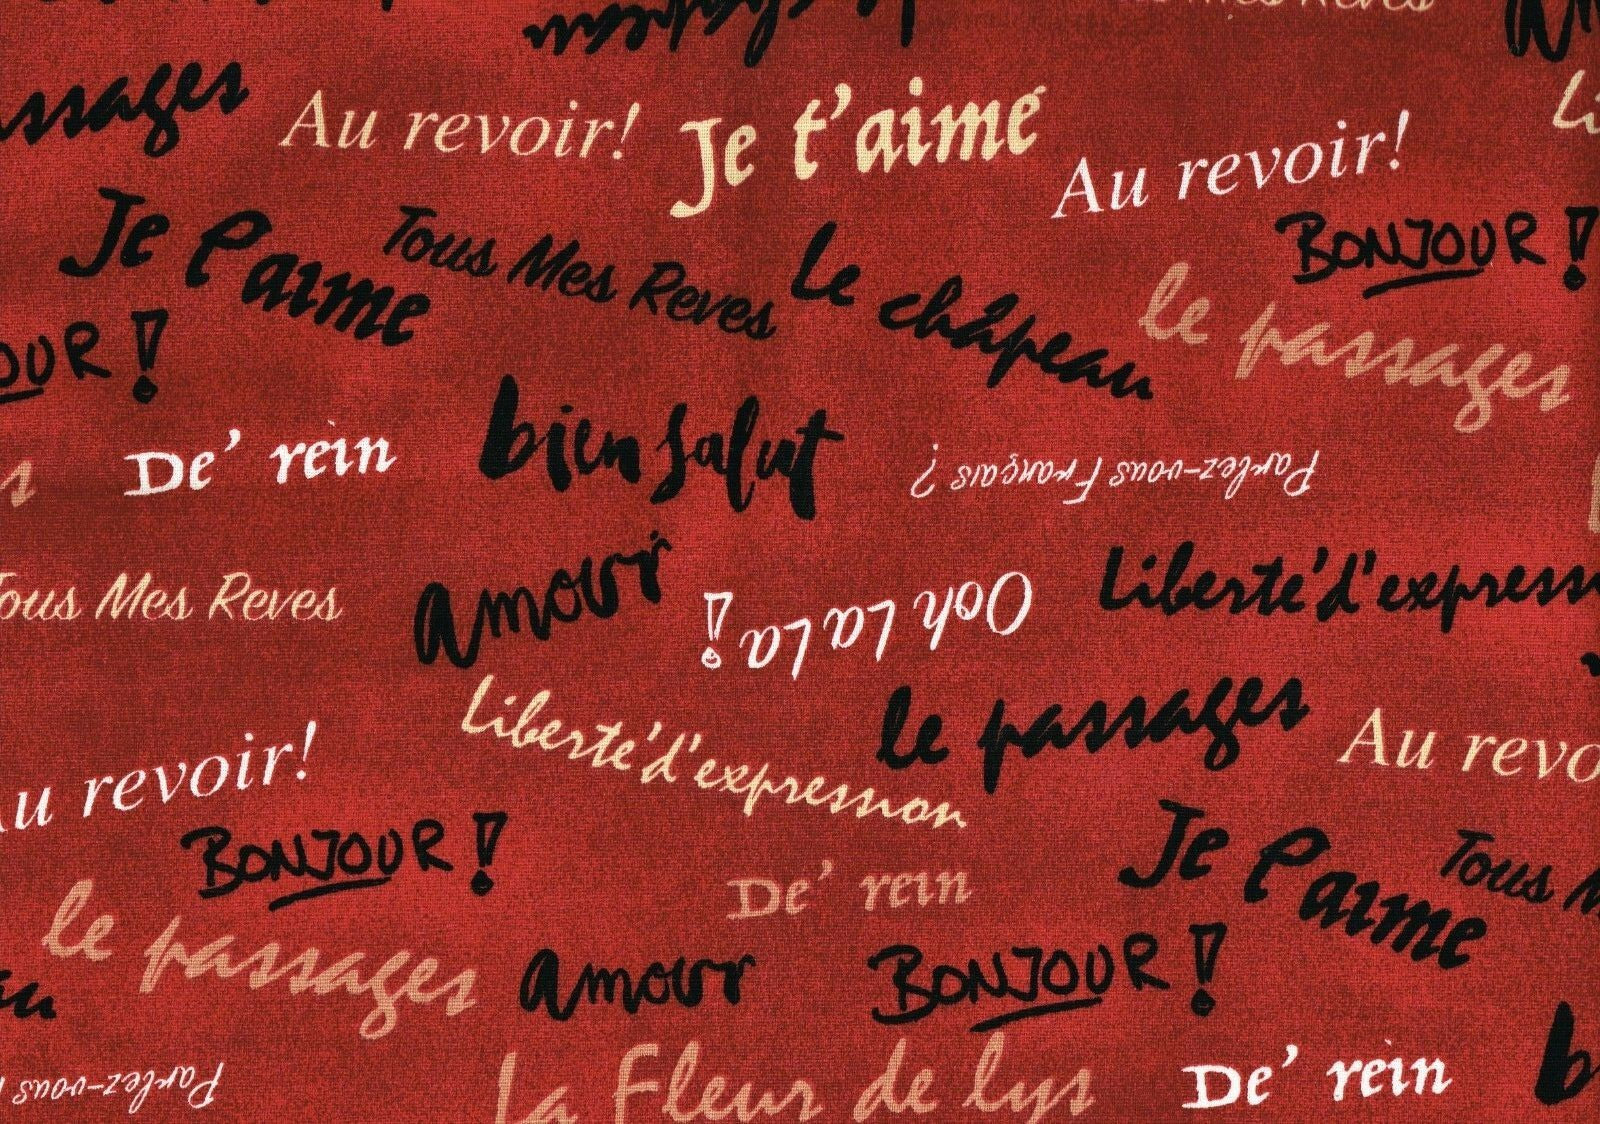 le chapeau
Tous Mes Reves
ssages
Au revoir!
Je t'aime
Au revoir!
Li
Je t'aime
Tous Mes Reves
Le châpeau
BONJOUR!
le passages
OUR!
De' rein
bien salut
Parlez-vous Français?
s
Tous Mes Reves
amour
Ooh La La!
Liberté'd'express
Liberté'd'expression
le passages
Au revo
Au revoir!
BONJOUR!
Je t'aime
Tous M
De' rein
le passages
amour
BONJOUR!
au
Parlez-vous
La Fleur de lys
De' rein
b